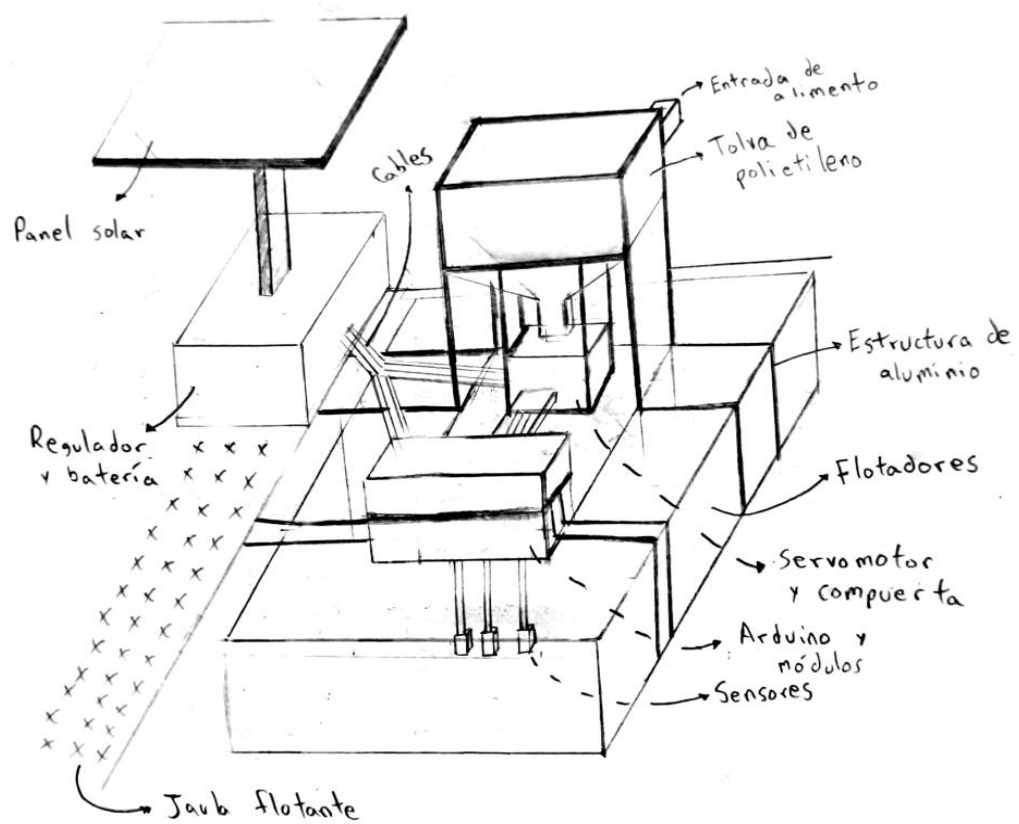 Entrada de
alimento
Tolva de
polietileno
Cables
Panel solar
Estructura de
aluminio
Regulador
y batería
Flotadores
Servomotor
y compuerta
Arduino y
módulos
Sensores
Jaula flotante